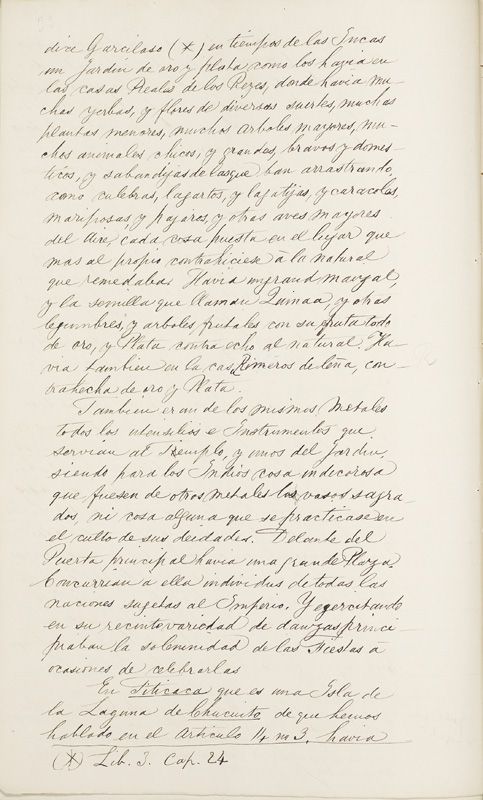 dice Garcilaso (*) en tiempos de las Incas
un Jardin de oro y plata como los havia en
las casas Reales de los Reyes, donde havia mu-
chas yerbas, y flores de diversas suertes, muchas
plantas menores, muchos arboles mayores, mu-
chos animales chicos, y grandes, bravos y domes-
ticos, y sabandijas de las que ban arrastrando,
como culebras, lagartos, y lagatijas, y caracoles,
mariposas y pajaros, y otras aves mayores
del aire, cada cosa puesta en el lugar que
mas al propio contrahiciese à la natural
que remedaba. Havia un grand maizal,
y la semilla que llaman Quinua, y otras
legumbres, y arboles frutales con su fruta todo
de oro, y Plata contra echo al natural. Ha-
via tambien en la casa Rimeros de leña, con-
trahecha de oro y Plata.
Tambien eran de los mismos Metales
todos los utensilios e Instrumentos que
servian al Templo, y unos del Jardin,
siendo para los Indios cosa indecorosa
que fuesen de otros metales los vasos sagra-
dos, ni cosa alguna que se practicase en
el culto de sus deidades. Delante del
Puerta principal havia una grande Plaza.
Concurrian a ella individus de todas las
naciones sugetas al Emperio. Y egercitando
en su recinto variedad de danzas princi-
piaban la solemnidad de las Fiestas à
ocasiones de celebrarlas
En Titicaca que es una Isla de
la Laguna de Chucuito de que hemos
hablado en el Articulo 14 n 3. havia
(*) Lib. 3. Cap. 24